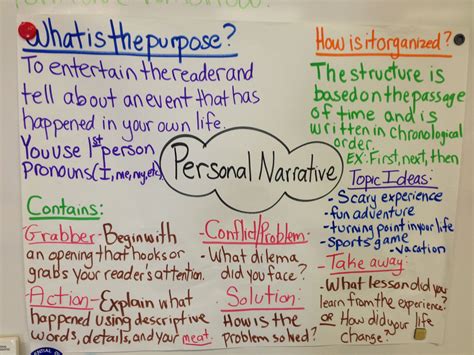 What is the purpose?
To entertain the reader and
tell about an event that has
happened in your own life.
You use 1st person
Pronouns (I, me, my, etc)
How is it organized?
The structure is
based on the passage
of time and is
written in chronological
order.
EX: First, next, then
Personal Narrative
Topic Ideas:
- Scary experience
- fun adventure
- turning point in your life
- sports game
- vacation
Contains:
Grabber - Begin with
an opening that hooks or
grabs your reader's attention.
Action - Explain what
happened using descriptive
words, details, and your meat.
Conflict/Problem:
- What dilema
did you face?
Solution:
How is the
problem solved?
- Take away:
- What lesson did you
learn from the experience?
or How did your life
change?